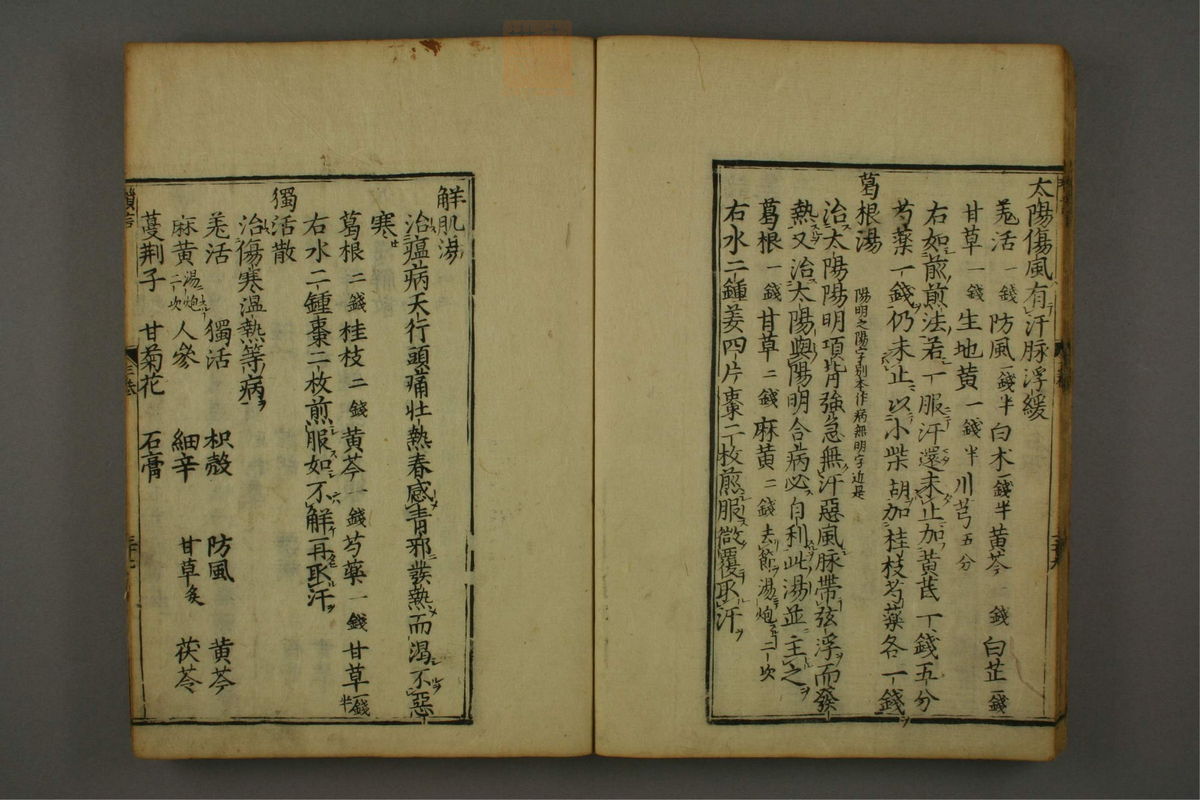 太陽傷風有汗脉浮緩
羗活一錢防風一錢半白朮一錢半黄芩一錢白芷一錢
甘草一錢生地黄一錢半川芎五分
右如煎煎法若一服汗還未止加黄芪一錢五分
芍薬一錢仍未止以小柴胡加桂枝芍薬各一錢
葛根湯 陽明之陽字別本作病無明字近是
治太陽陽明項背強急無汗惡風脉帶弦浮而發
熱又治太陽與陽明合病必自利此湯並主之
葛根一錢甘草二錢麻黄二錢去節湯炮二次
右水二鍾姜四片棗二枚煎服微覆取汗
解肌湯
治瘟病天行頭痛壯熱春感青邪發熱而渴不惡
寒
葛根二錢桂枝二錢黄芩一錢芍薬一錢甘草一錢半
右水二鍾棗二枚煎服如不解再取汗
獨活散
治傷寒温熱等病
羗活 獨活 枳殼 防風 黄芩
麻黄湯炮二次 人參 細辛 甘草炙 茯苓
蔓荆子 甘菊花 石膏